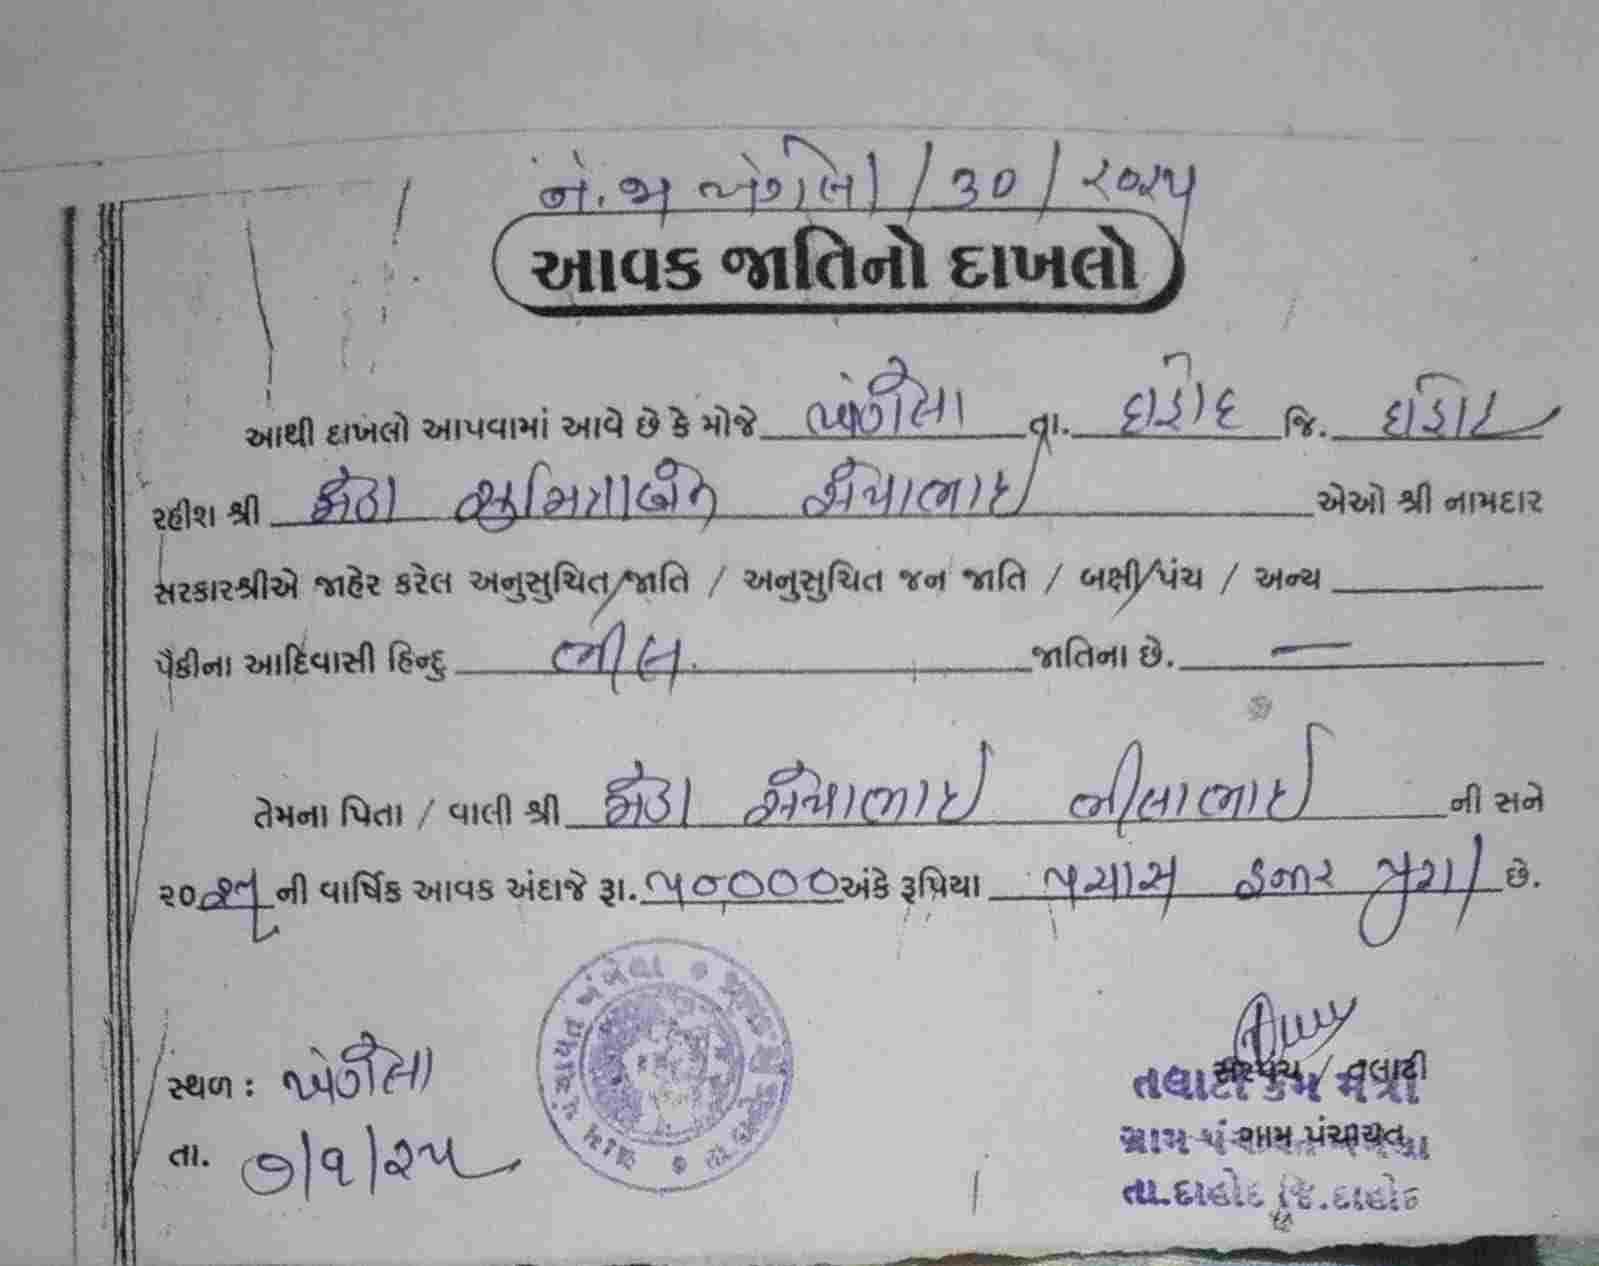 /૩૦/૨૦૨૫
આવક જાતિનો દાખલો
આથી દાખલો આપવામાં આવે છે કે મોજે ખંગેલા તા. દાહોદ જિ. દાહોદ
રહીશ શ્રી મેડા સુમિત્રાબેન એઓ શ્રી નામદાર
સરકારશ્રીએ જાહેર કરેલ અનુસુચિત જાતિ / અનુસુચિત જન જાતિ / બક્ષીપંચ / અન્ય
પૈકીના આદિવાસી હિન્દુ ભીલ જાતિના છે. —
તેમના પિતા / વાલી શ્રી મેડા ભીલાભાઈ ની સને
૨૦ ની વાર્ષિક આવક અંદાજે રૂા. ૫૦૦૦૦ અંકે રૂપિયા પચાસ હજાર પુરા છે.
સ્થળ : ખંગેલા
તા. ૭/૧/૨૫
સરપંચ / તલાટી
તલાટી કમ મંત્રી
ગ્રામ પંચાયત
તા.દાહોદ જિ.દાહોદ